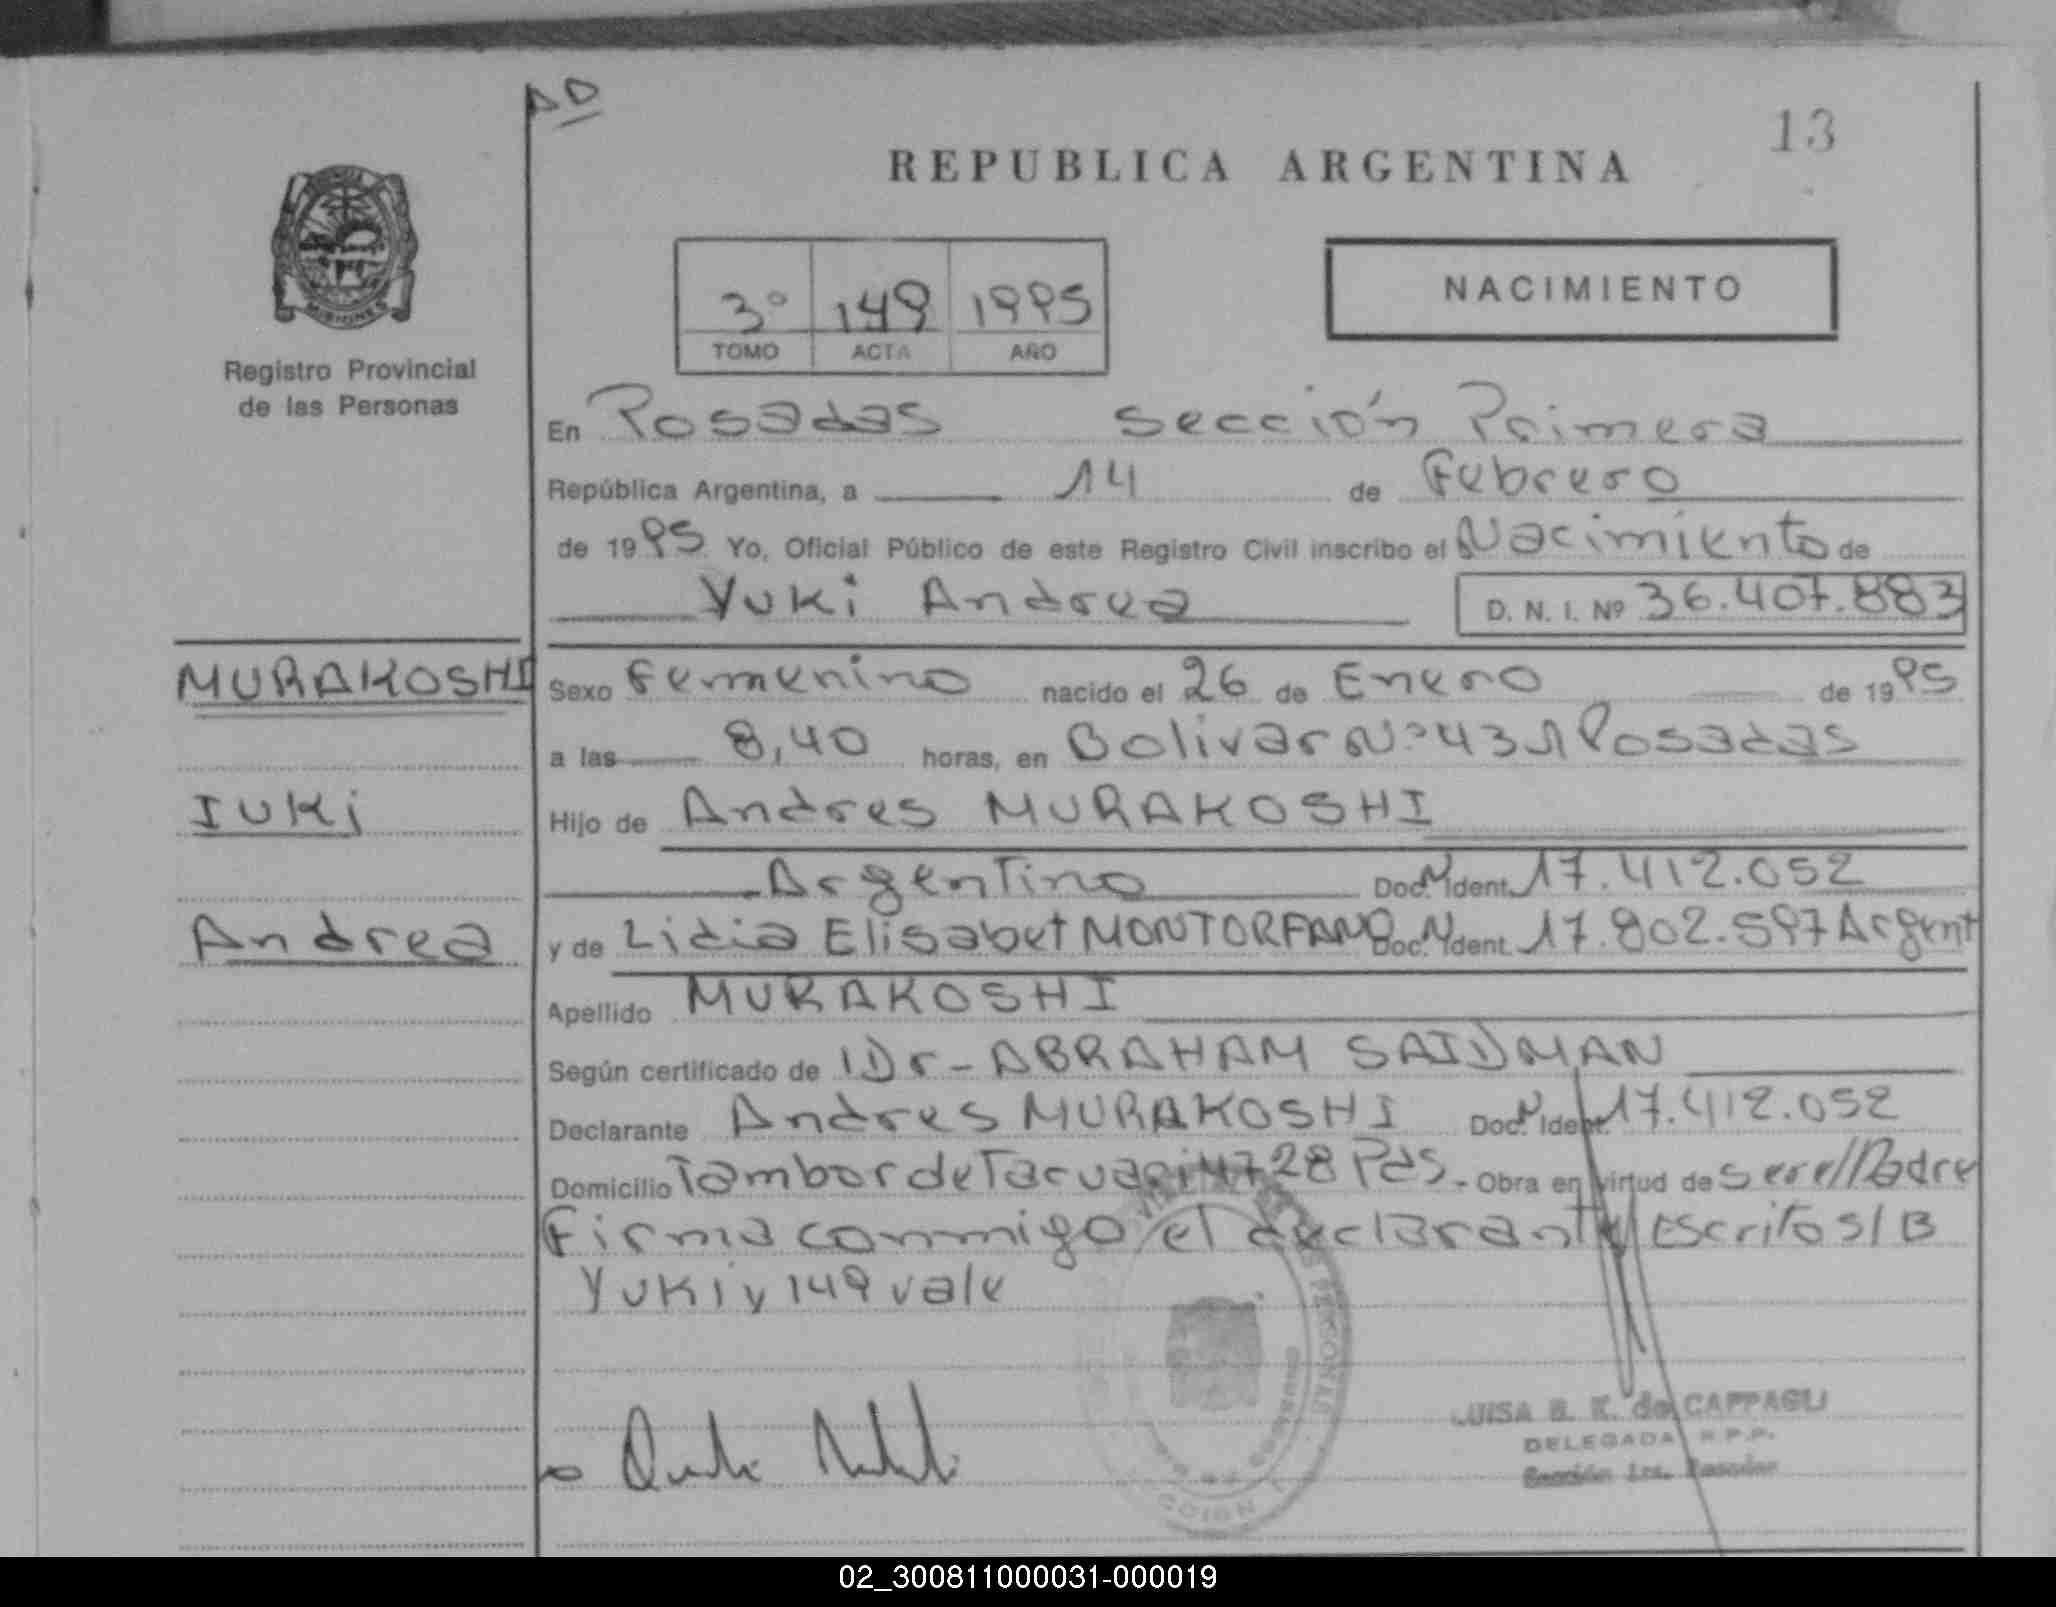 AD
13
REPUBLICA ARGENTINA
MISIONES
Registro Provincial
de las Personas
3° 149 1995
TOMO ACTA AÑO
NACIMIENTO
En Posadas Sección Primera
República Argentina, a 14 de Febrero
de 1995 Yo, Oficial Público de este Registro Civil inscribo el Nacimiento de
Yuki Andrea D. N. I. Nº 36.407.883
MURAKOSHI
Iuki
Andrea
Sexo Femenino nacido el 26 de Enero de 1995
a las 8,40 horas, en Bolivar Nº 431 Posadas
Hijo de Andres MURAKOSHI
Argentino Doc. N. Ident. 17.412.052
y de Lidia Elisabet MONTORFANO Doc. N. Ident. 17.802.597 Argent
Apellido MURAKOSHI
Según certificado de Dr- ABRAHAM SAIDMAN
Declarante Andres MURAKOSHI Doc. N. Ident. 17.412.052
Domicilio Tambor de Tacuari 4728 Pds. - Obra en virtud de ser el Padre
Firma conmigo el declarante Escrito S/B
Yuki y 149 vale
LUISA B. K. de CAPPAGLI
DELEGADA R.P.P.
Sección 1ra. Posadas
02_300811000031-000019